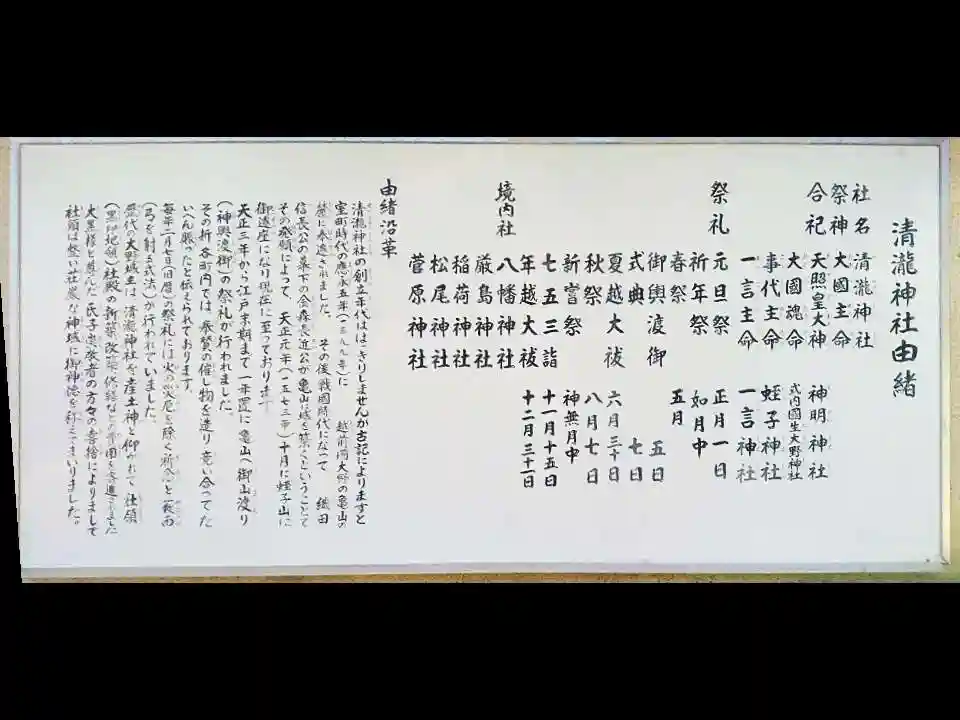 清瀧神社由緒
社名 清瀧神社
祭神 大國主命
合祀 天照皇大神 神明神社
大國魂命 式内國生大野神社
事代主命 蛭子神社
一言主命 一言神社
祭礼 元旦祭 正月一日
祈年祭 如月中
春祭 五月
御輿渡御 五日
式典 七日
夏越大祓 六月三十日
秋祭 八月七日
新嘗祭 神無月中
七五三詣 十一月十五日
年越大祓 十二月三十一日
境内社 八幡神社
厳島神社
稲荷神社
松尾神社
菅原神社
由緒沿革
清瀧神社の創立年代ははっきりしませんが古記によりますと
室町時代の應永五年(一三九九年)に 越前河大野の亀山の
麓に奉遷されました。 その後戦國時代になって 織田
信長公の幕下の金森長近公が亀山に城を築くということで
その発願によって、天正元年(一五七三年)十月に蛭子山に
御遷座になり現在に至っております
天正三年から江戸末期まで一年置に亀山へ御山渡り
(神輿渡御)の祭礼が行われました。
その折谷町内では、奉賛の催し物を造り競い合ってた
いへん賑ったと伝えられております。
毎年二月七日(旧暦)の祭礼には火の災厄を除く祈念と
(弓を射る式法)が行われていました。
歴代の大野城主は、清瀧神社を産土神と仰がれて 社領
(黒印地領)社殿の新築、改築、修繕などの費用を寄進されました
大黒様と尊んだ氏子崇敬者の方々の喜捨によりまして
社頭は整い荘厳な神域に御神徳を称えてまいりました。